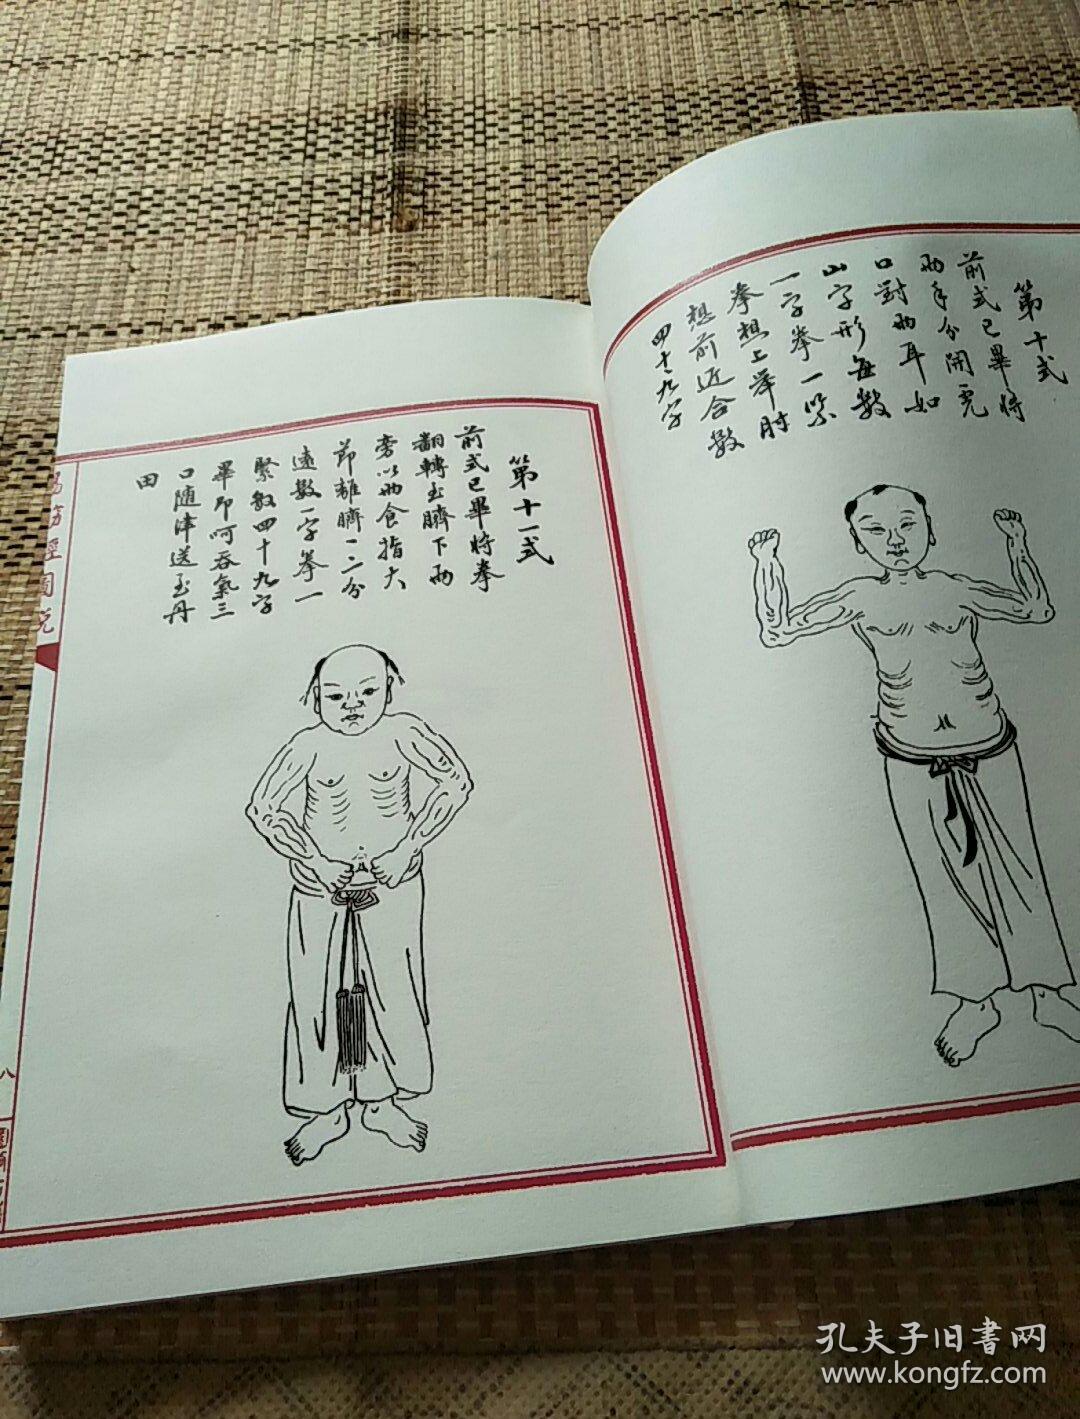 第十式
前式已畢將
兩手分開虎
口對兩耳如
山字形每數
一字拳一緊
拳想上舉肘
想前近合數
四十九字
第十一式
前式已畢將拳
翻轉至臍下兩
旁以兩食指大
節離臍一二分
遠數一字拳一
緊數四十九字
畢即呵吞氣三
口隨津送至丹
田
易筋經圖說
八
孔夫子旧書网
www.kongfz.com